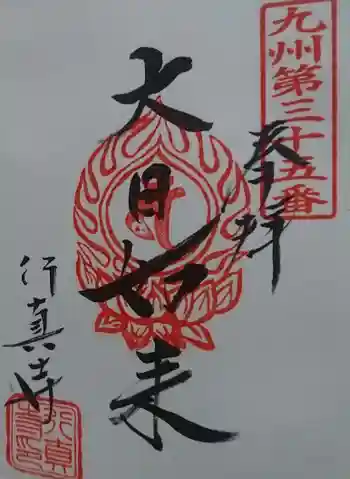 九州第三十五番
奉拝
大日如来
行真寺
行真寺印